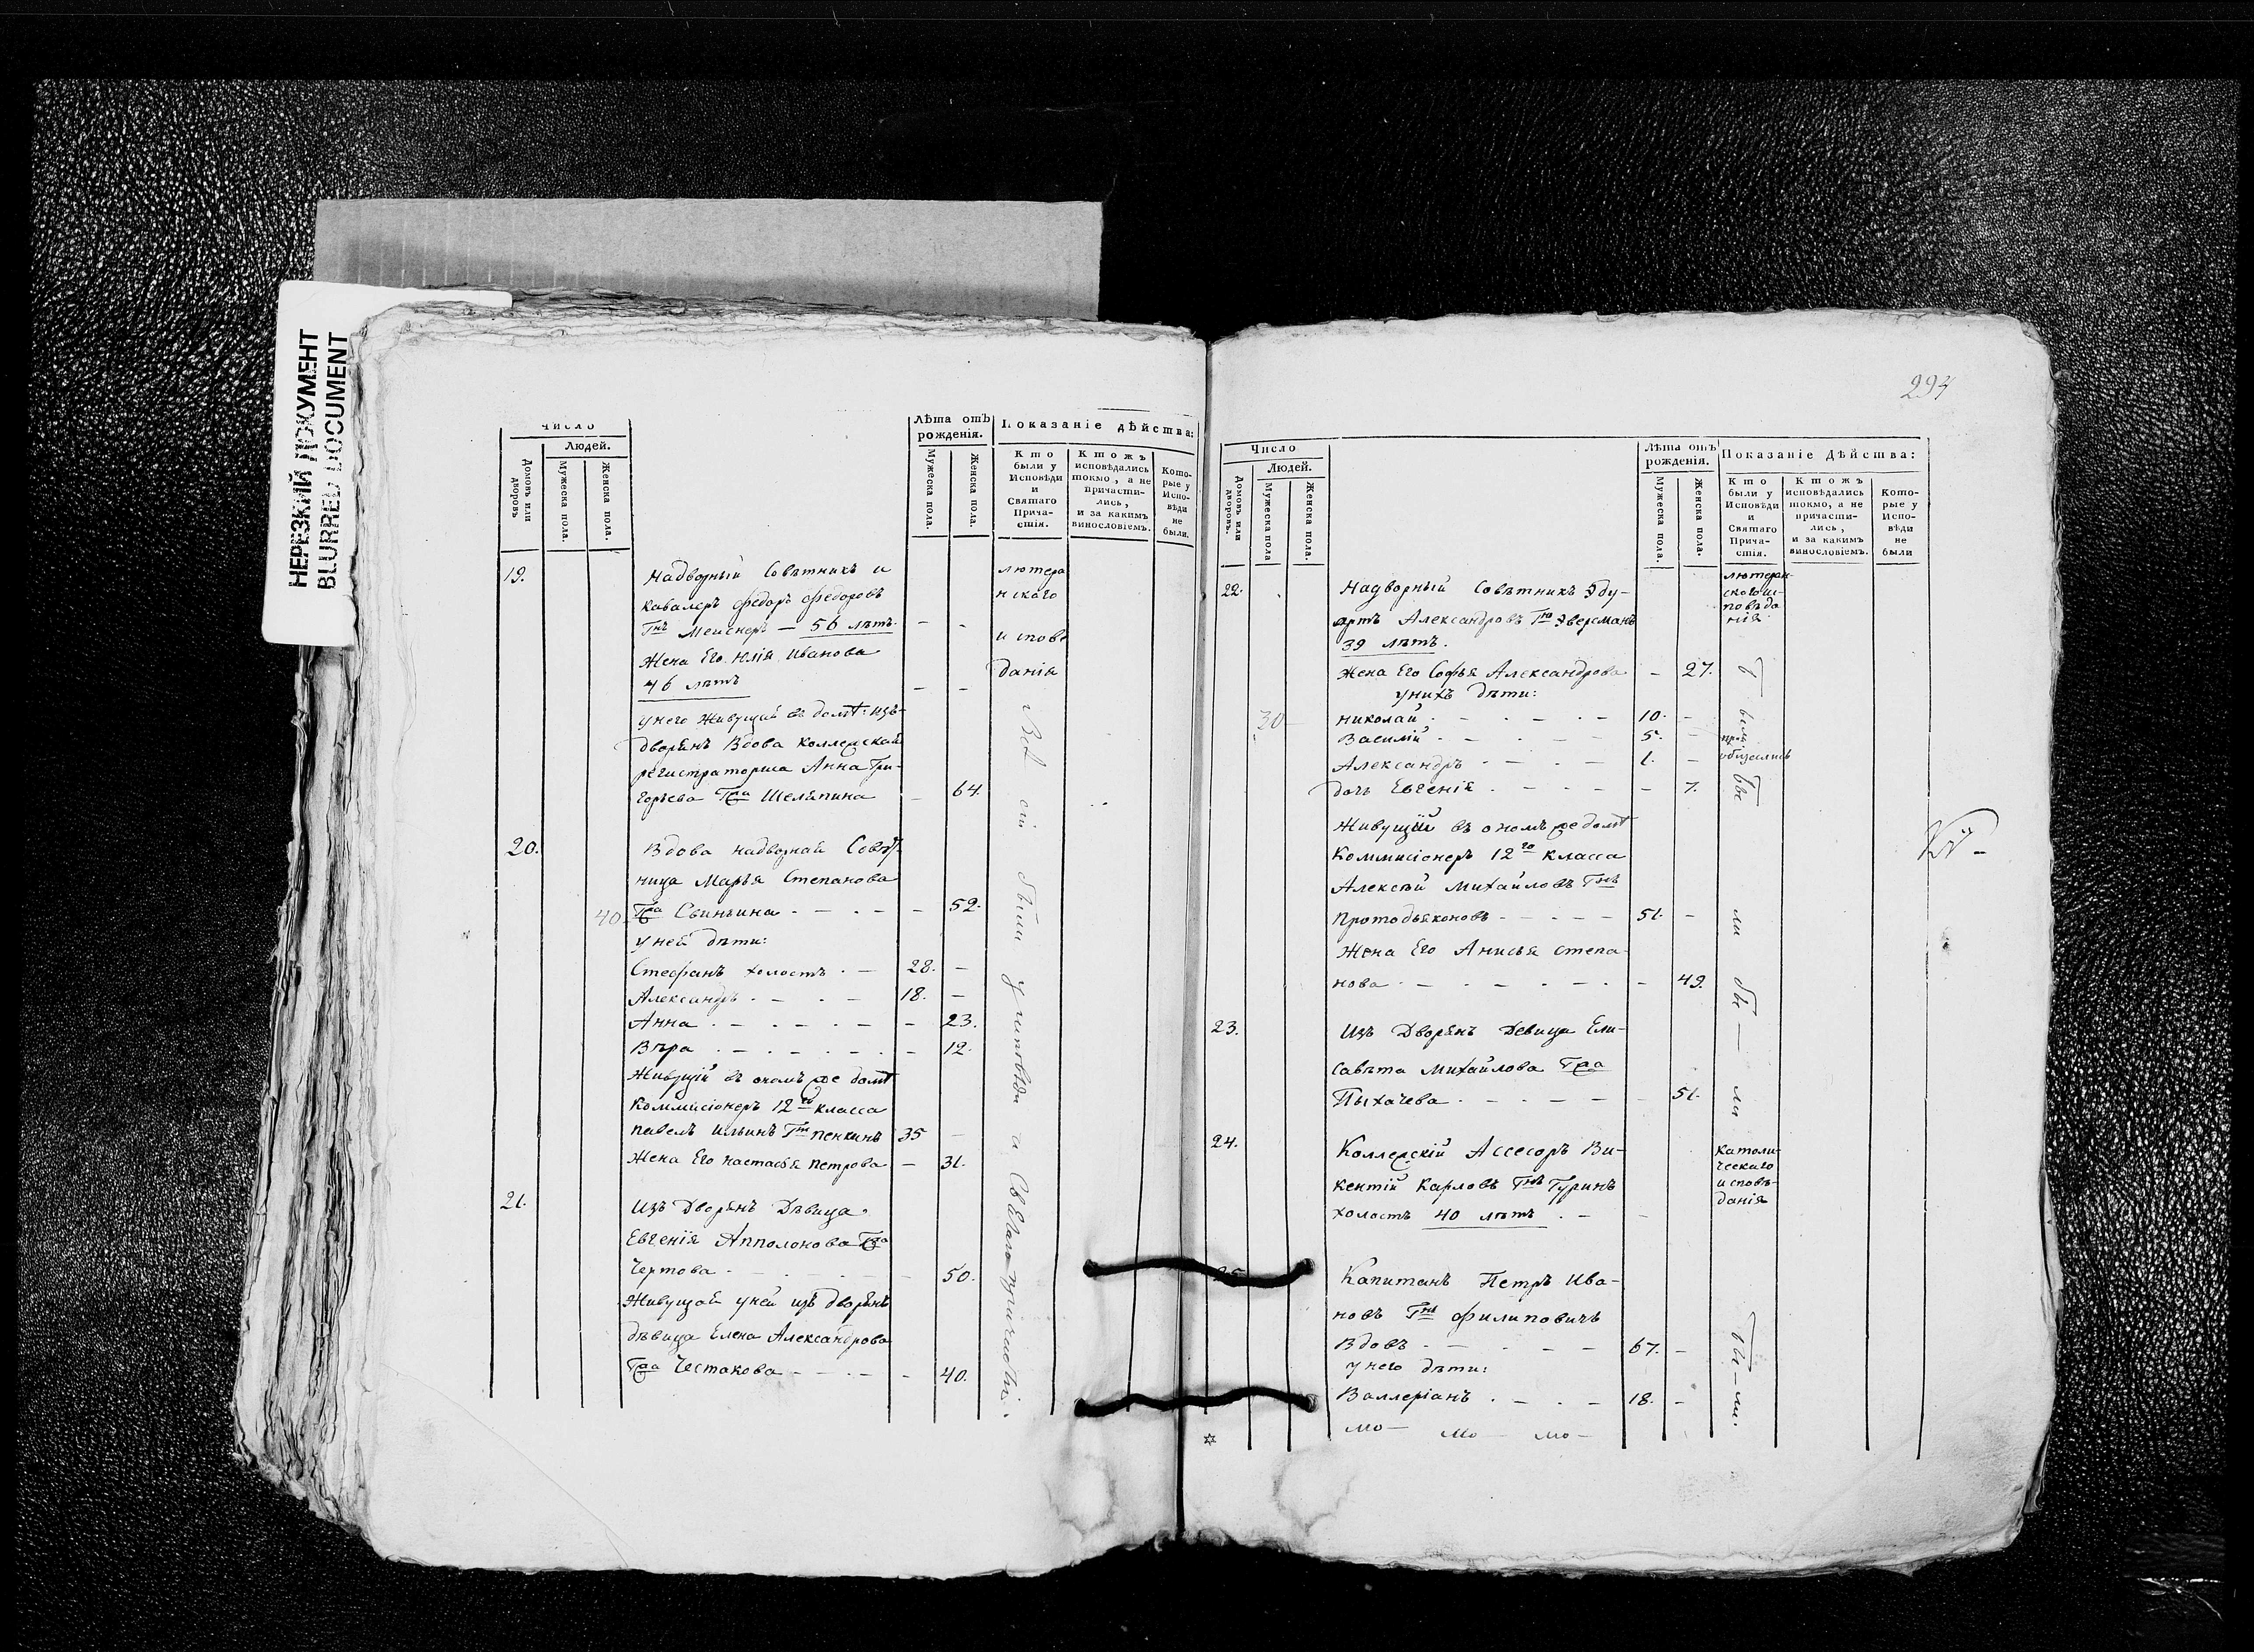 НЕРЕЗКИЙ ДОКУМЕНТ
BLURRED DOCUMENT
Число
Людей.
Домовъ или дворовъ
Мужеска пола.
Женска пола.
Лѣта отъ рожденія.
Мужеска пола.
Женска пола.
Показаніе дѣйства:
Кто были у Исповѣди и Святаго Причастія.
Ктожъ исповѣдались токмо, а не причастились, и за какимъ винословіемъ.
Которые у Исповѣди не были.
19. Надворный Совѣтникъ и
Кавалеръ Федоръ Федоровъ
Гнъ Мейснеръ — 56 лѣтъ. - -
Жена Его Юлія Иванова
46 лѣтъ - -
лютера
нскаго
испове
данія
у него Живущая въ домѣ: изъ
дворянъ Вдова Коллежская
регистраторша Анна Гри-
горьева Гжа Шеляпина - 64.
20. Вдова надворная Совѣт-
ница Марья Степанова
40 Гжа Свиньина - 52.
у ней дѣти:
Стефанъ холостъ 28. -
Александръ 18. -
Анна - 23.
Вѣра - 12.
Живущій въ ономъ же домѣ
Коммисіонеръ 12го класса
Павелъ Ильинъ Гнъ Пенкинъ 35 -
Жена Его Настасья Петрова - 31.
21. Изъ Дворянъ Дѣвица
Евгенія Апполонова Гжа
Чертова - 50.
Живущая у ней изъ дворянъ
дѣвица Елена Александрова
Гжа Честакова - 40.
Всѣ сіи были у исповѣди и Свѣтаго причастія.
294
Число
Людей.
Домовъ или дворовъ.
Мужеска пола
Женска пола.
Лѣта отъ рожденія.
Мужеска пола.
Женска пола.
Показаніе Дѣйства:
Кто были у Исповѣди и Святаго Причастія.
Ктожъ исповѣдались токмо, а не причастились, и за какимъ винословіемъ.
Которые у Исповѣди не были
22. Надворный Совѣтникъ Эду-
артъ Александровъ Гнъ Эверсманъ
39 лѣтъ.
лютеран-
скаго ис-
повѣда
нія
Жена Его Софья Александрова - 27.
у нихъ дѣти:
30 Николай 10. -
Василій 5. -
Александръ 1. -
дочь Евгенія - 7.
Живущій въ ономъ же домѣ
Коммисіонеръ 12го класса
Алексѣй Михайловъ Гнъ
Протодьяконовъ 51. -
Жена Его Анисья Степа-
нова - 49.
23. Изъ Дворянъ Девица Ели-
савѣта Михайлова Гжа
Пыхачева - 51.
бы — ли
24. Коллежскій Ассесоръ Ви-
кентій Карловъ Гнъ Туринъ
холостъ 40 лѣтъ -
католи-
ческаго
исповѣ-
данія
25. Капитанъ Петръ Ива-
новъ Гнъ Филиповичъ
Вдовъ 67. -
у него дѣти:
Валлеріанъ 18. -
бы — ли.